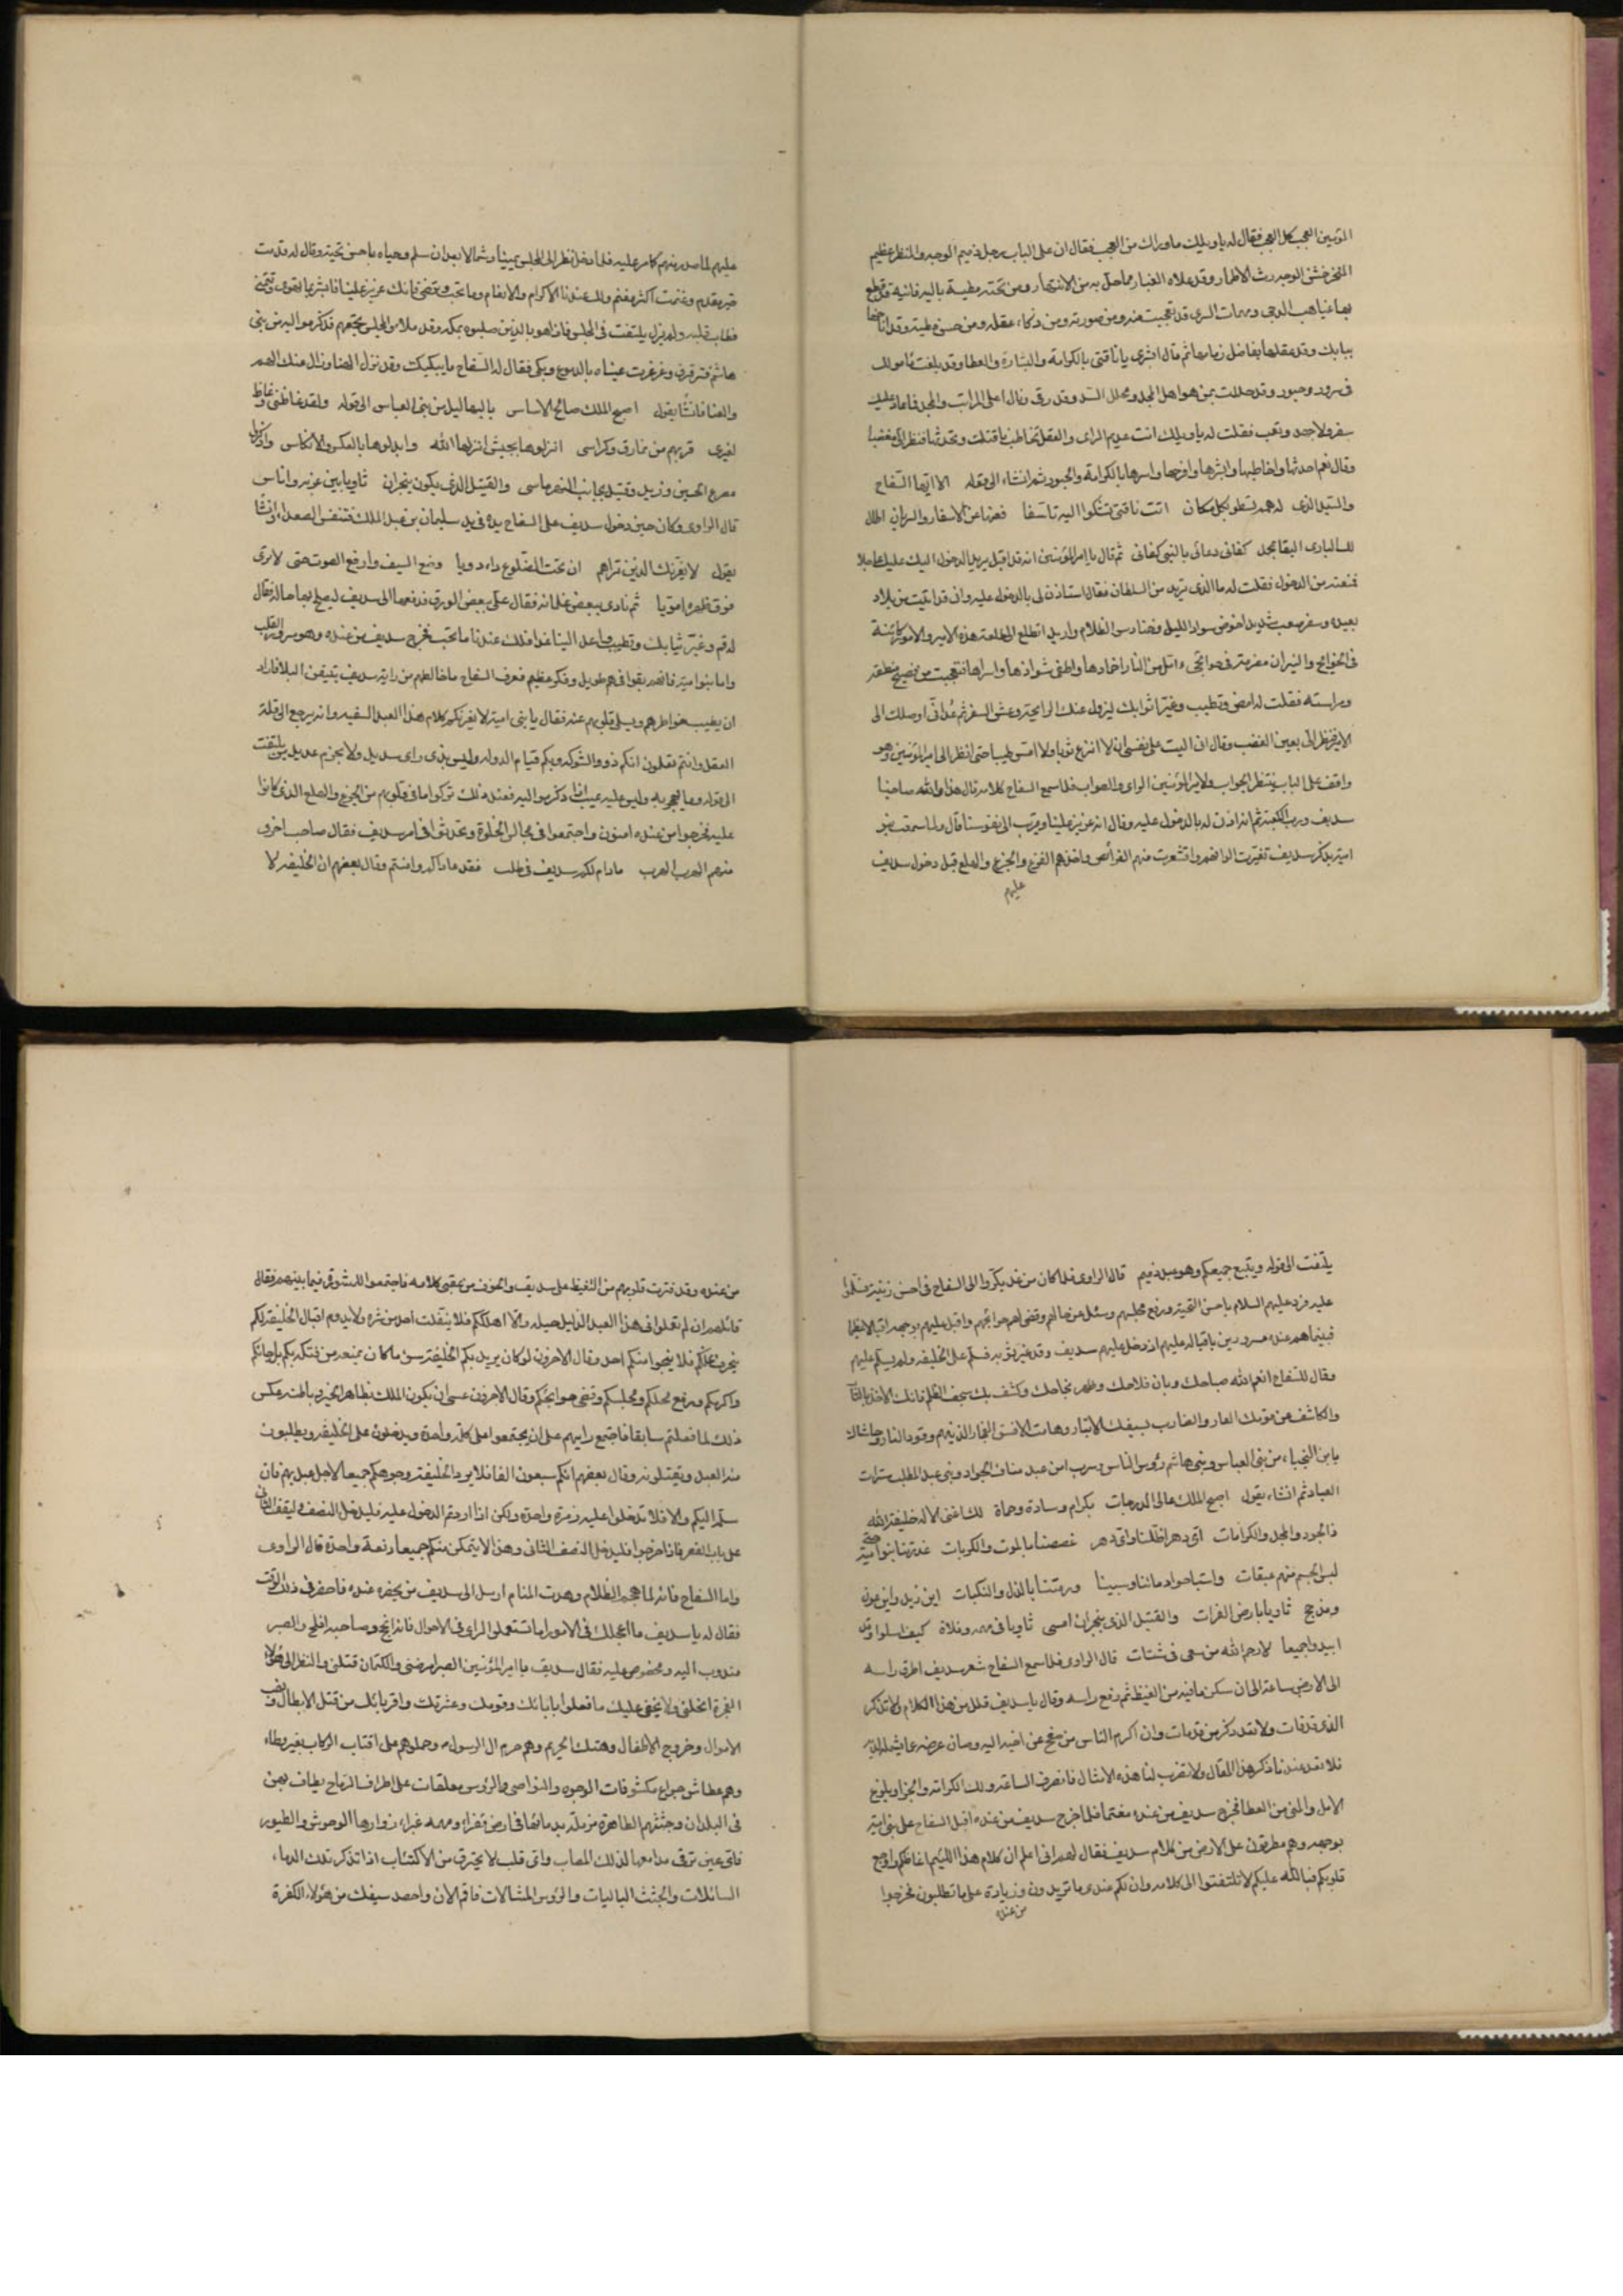 المؤمنين العجب كل العجب فقال له يا ويلك ما وراك من العجب فقال ان على الباب رجل ذميم الوجه والمنظر عظيم
المنخر خشن الوجه رث الاطمار وقد علاه الغبار مما حل به من الاشتهار ومن تحته مطية باليه فانيه قد قطع
بها غياهب الدجى ومهمات السرى قد تعجبت منه ومن صورته ومن ذكاء عقله ومن حسن مطيته وقد اناخها
ببابك وقد عقلها بفاضل زمامها ثم قال ابشرى يا ناقتى بالكرامة والبشارة والعطا وقد بلغت مأمولك
فى سرور وحبور وقد حللت بمن هو اهل المجد ومحلل الشد وقد رقى ونال اعلى المراتب والمجد فما عاد عليك
سفر ولا جهد وتعب فقلت له يا ويلك انت عديم الراى والعقل تخاطب ناقتك وتحدثها فنظر الى مغضبا
وقال نعم احدثها واخاطبها وابشرها وافرحها واسرها بالكرامة والحبور ثم انشاء الى يقول الا ايها السفاح
والسيد الذى له همه تسطو بكل مكان اتت ناقتى تشكوا اليه تاسفا فعزها عن الاسفار والسريان اطال
للبارى البقا بمجد كفانى دعائى بالنبى كفانى ثم قال يا امير المؤمنين انه قد اقبل يريد الدخول اليك عليك عاجلا
فمنعته من الدخول فقلت له ما الذى تريد من السلطان فقال استاذن لى بالدخول عليه وانى قد اتيت من بلاد
بعيده وسفر صعب شديد اخوض سواد الليل وحنادس الظلام واريد اتطلع الى طلعة هذه الامير والامور كائنة
فى الحوائج والنيران مضرمة فى جوانحى اتل من النار اخمادها واطفى شواذها واسرها فتعجبت من فصيح منطقه
ومراسته فقلت له امض وتطيب وغير اثوابك ليزول عنك الرايحة وعش السفر ثم عد انى اوصلك الى
الامير فنظر الى بعين الغضب وقال انى اليت على نفسى ان لا انزع ثوبا ولا امس طيبا حتى انظر الى امير المؤمنين وهو
واقف على الباب ينتظر الجواب ولامير المؤمنين الراى والصواب فلما سمع السفاح كلامه قال هذا والله صاحبنا
سديف ورب الكعبة ثم انه اذن له بالدخول عليه وقال انه عزيز علينا ومقرب الى نفوسنا قال ولما سمعت بنو
امية بذكر سديف تغيرت الوانهم واقشعرت منهم الفرائص واخذهم الفزع والجزع والهلع قبل دخول سديف
عليهم
عليهم لما صدر منهم كامر عليه فلما دخل نظر الى المجلس يمينا وشمالا بعد ان سلم وحياه باحسن تحية وقال له قدمت
خير مقدم وغنمت اكثر مغنم ولك عندنا الاكرام والانعام وما تحب وترضى فانك عزيز علينا فابشر بما تهوى وتتمنى
فطاب قلبه ولم يزل يلتفت فى المجلس فاذا هو بالذين صلبوه بمكه وقد ملاء المجلس بجمعهم فذكر مواليه من بنى
هاشم فترقرق وغرغرت عيناه بالدموع وبكى فقال له السفاح ما يبكيك وقد نزل الهنا وزال عنك الهم
والعنا فانشأ يقول اصبح الملك صالح الاساس بالبهاليل من بنى العباس الى قوله ولقد غاظنى وغاظ
لغيرى قربهم من نمارق وكراسى انزلوها بحيث انزلها الله وابدلوها بالعكس والانكاس واذكروا
مصرع الحسين وزيد وقتيل بجانب المهرماسى والقتيل الذى يكون بنجران ثاويا بين غربه واناس
قال الراوى وكان حين دخول سديف على السفاح يده فى يد سليمان بن عبد الملك فتنفس الصعداء وانشأ
يقول لا يغرنك الذين تراهم ان تحت الضلوع داء دويا وضع السيف وارفع الصوت حتى لا ترى
فوق ظهره امويا ثم نادى ببعض غلمانه فقال على ببعض الورق فدفعها الى سديف ليصلح بها حاله فقال
له قم وغير ثيابك وتطيب واعد الينا غدا فلك عندنا ما تحب فخرج سديف من عنده وهو مسرور القلب
واما بنو امية فانهم بقوا فى هم طويل وفكر عظيم فعرف السفاح ما خالطهم من راية سديف بتيقن البلا فاراد
ان يطيب خواطرهم ويسلى قلوبهم عنه فقال يا بنى امية لا يغرنكم كلام هذا العبد السفيه وانه يرجع الى قلة
العقل وانتم تعلمون انكم ذوو الشوكه وبكم قيام الدوله وليس بذى راى سديد ولا بحزم عديد يلتفت
الى قوله وما يعبر به وليس عليه عيب اذا ذكر مواليه فعند ذلك تركوا ما فى قلوبهم من الجزع والهلع الذى كانوا
عليه فخرجوا من عنده امنون واجتمعوا فى مجال الخلوة وتحدثوا فى امر سديف فقال صاحب اخرق
منهم الهرب الهرب ما دام لكم سديف فى طلب فقد هاذاكم وانتم وقال بعضهم ان الخليفه لا
يلتفت الى قوله ويتبع جميعكم وهو عبد ذميم قال الراوى فلما كان من غد بكروا الى السفاح فى احسن زينة فسلموا
عليه فرد عليهم السلام باحسن التحية ورفع مجلسهم وسئل عن حالهم وقضى لهم حوائجهم واقبل عليهم بوجهه اقبالا عظيما
فبيناهم عنده مسرورين باقباله عليهم اذ دخل عليهم سديف وقد غير ثوبه فسلم على الخليفه ولم يسلم عليهم
وقال للسفاح انعم الله صباحك وبان فلاحك وظهر نجاحك وكشف بك سجف الظلم فانك الاخذ بالثار
والكاشف عن قومك العار والضارب بسيفك الاتبار وهامت الافسق الفجار الذينهم وقود النار وحاشاك
يابن النجباء من بنى العباس وبنى هاشم رؤس الناس وسرب امن عبد مناف الجواد وبنى عبد المطلب سرات
العباد ثم انشاء يقول اصبح الملك عالى الدرجات بكرام وسادة وحماة لك اعنى الاله خليفة الله
فالجود والمجد والكرامات اى دهر اظلنا واى دهر غصصنا بالموت والكربات غدرتنا بنوا امية حتى
لبس الجسم منهم عبقات واستباحوا دمائنا وسبينا ورمتنا بالذل والنكبات اين زيد واين عون
ومذحج ثاويا بارض الفرات والقتيل الذى بنجران امسى ثاويا فى مهمه وفلاة كيف اسلوا وقد
ابيدوا جميعا لا رحم الله من سعى فى شتات قال الراوى فلما سمع السفاح شعر سديف اطرق راسه
الى الارض ساعة الى ان سكن ما فيه من الغيظ ثم رفع راسه وقال يا سديف قلل من هذا الكلام ولا تذكر
الذى قد فات ولا تعد ذكر من قد مات وان اكرم الناس من صفح عن اخيه اليه وصان عرضه عما يشمله الذم
فلا تعد عندنا ذكر هذا المقال ولا تقرب لنا هذه الامثال فانصرف الساعة ولك الكرامة والجزا وبلوغ
الامل والمنى من العطا فخرج سديف من عنده مغتما فلما خرج سديف من عنده اقبل السفاح على بنى امية
بوجهه وهم مطرقون على الارض من كلام سديف فقال لهم انى اعلم ان كلام هذا اللئيم اغاظكم واوجع
قلوبكم فبالله عليكم لا تلتفتوا الى كلامه وان لكم عندى ما تريدون وزيادة على ما تطلبون فخرجوا
من عنده
من عنده وقد فترت قلوبهم من الغيظ على سديف والخوف من عقبى كلامه فاجتمعوا للمشورة فيما بينهم فقال
قائلهم ان لم تعلوا فى هذا العبد الذليل حيله والا اهلككم فلا ينفلت احد من شره ولا يدوم اقبال الخليفة لكم
ينحرف عنكم فلا ينجوا منكم احد وقال الاخرون لو كان يريد بكم الخليفة سوء ما كان يمنعه من فتكه بكم بل حباكم
واكرمكم ورفع محلكم ومجلسكم وقضى حوائجكم وقال الاخرون عسى ان يكون الملك بظاهر الخير وباطنه عكس
ذلك لما فعلتم سابقا فاجتمع رايهم على ان يجتمعوا على كلمة واحدة ويدخلون على الخليفه ويطلبون
منه العبد ويقتلونه وقال بعضهم انكم سبعون الفا فلا يرد الخليفة وجوهكم جميعا لاجل عبد يهم فان
سلم اليكم والا فلا تدخلوا عليه زمرة واحدة ولكن اذا اردتم الدخول عليه فليدخل النصف وليقف الثانى
على باب القصر فاذا خرجوا فليدخل النصف الثانى وهذا لا يتمكن منكم جميعا دفعة واحدة قال الراوى
واما السفاح فانه لما هجم الظلام وهدت المنام ارسل الى سديف من يحضره عنده فاحضر فى ذلك الوقت
فقال له يا سديف ما اعجلك فى الامور اما تستعمل الراى فى الاحوال فانه انجح وصاحبه افلح والصبر
مندوب اليه ومحضوض عليه فقال سديف يا امير المؤمنين الصبر امرضنى والكتمان قتلنى والنظر الى هؤلاء
الفجرة انحلنى ولا يخفى عليك ما فعلوا بابائك وقومك وعشرتك واقربائك من قتل الابطال ونهب
الاموال وخروج الاطفال وهتك الحريم وهم حرم ال الرسول وحملوهم على اقتاب الركاب بغير وطاء
وهم عطاش جواع مكشوفات الوجوه والنواصى والرؤس معلقات على اطراف الرماح يطاف بهن
فى البلدان وجثثهم الطاهرة مزملة بدمائها فى ارض قفراء ومهمه غبراء زوارها الوحوش والطيور
فاى عين ترقى مدامعها لذلك المصاب واى قلب لا يحترق من الاكتئاب اذا تذكر تلك الدماء
السائلات والجثث الباليات والرؤس المشالات فاقم الان واحصد سيفك من هؤلاء الكفرة